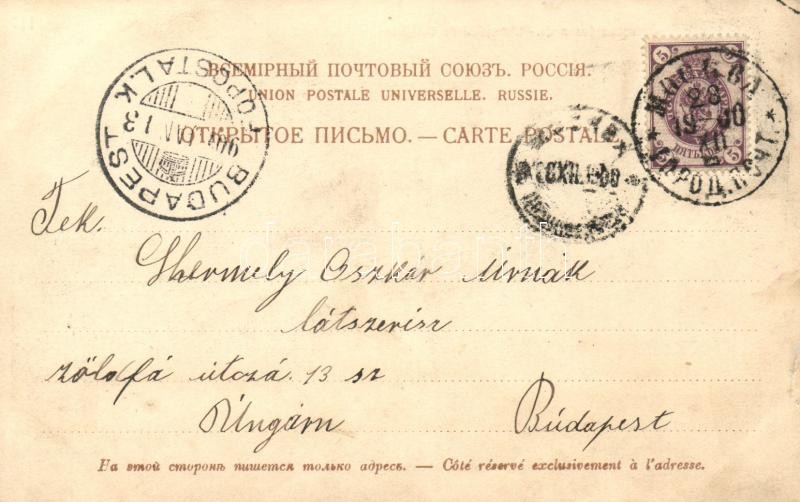 ВСЕМІРНЫЙ ПОЧТОВЫЙ СОЮЗЪ. РОССІЯ.
UNION POSTALE UNIVERSELLE. RUSSIE.
ОТКРЫТОЕ ПИСЬМО. — CARTE POSTALE
BUDAPEST
МОСКВА
28
1900
ГОРОД. ПОЧТ.
5
5
Tek.
Oszkár Úrnak
látszerész
zöldfa utcza. 13 sz
Úngárn Búdapest
На этой сторонѣ пишется только адресъ. — Côté réservé exclusivement à l'adresse.